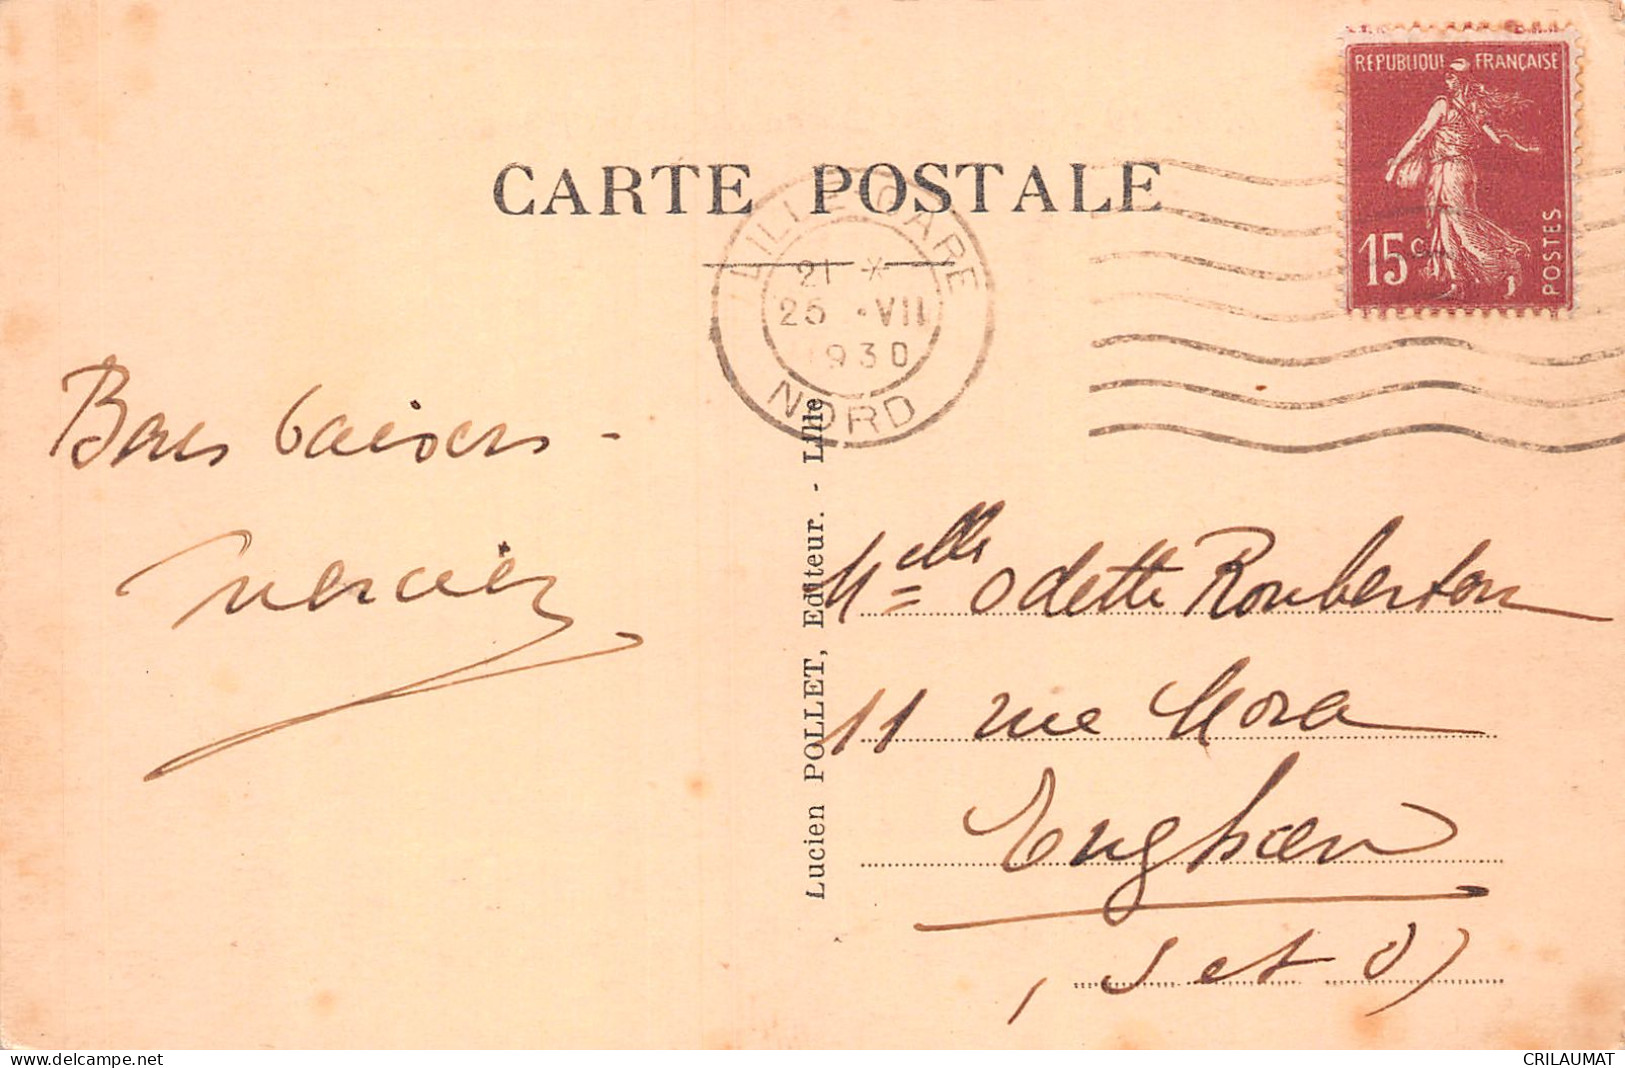 CARTE POSTALE
REPUBLIQUE FRANÇAISE
15c
POSTES
LILLE-GARE
21 *
26 · VII
1930
NORD
Bons baisers -
Mercier
Lucien POLLET, Editeur. - Lille
Melle Odette Rouberton
11 rue Mora
Enghien
(S et O)
www.delcampe.net
CRILAUMAT